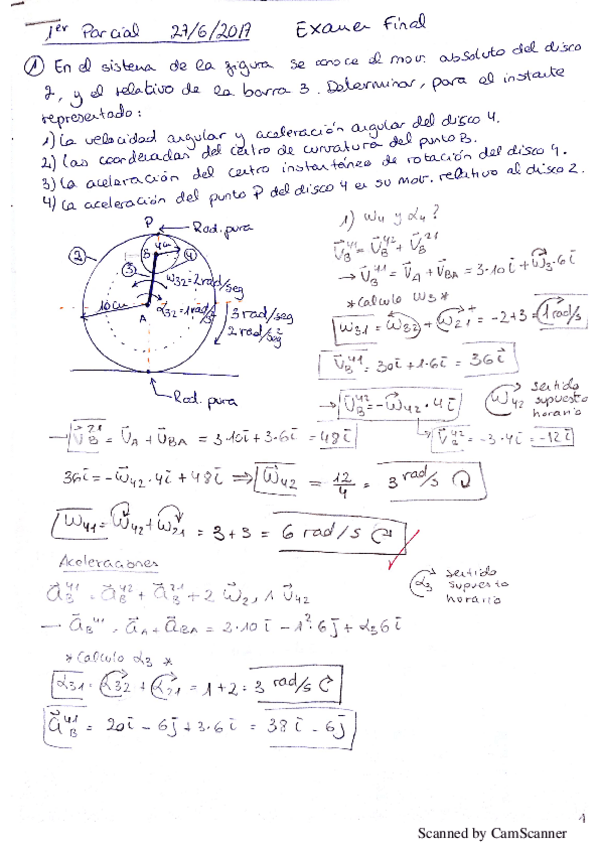 1er Parcial 27/6/2017 Examen Final
① En el sistema de la figura se conoce el mov. absoluto del disco
2, y el relativo de la barra 3. Determinar, para el instante
representado:
1) La velocidad angular y aceleración angular del disco 4.
2) Las coordenadas del centro de curvatura del punto B.
3) La aceleración del centro instantáneo de rotación del disco 4.
4) La aceleración del punto P del disco 4 en su mov. relativo al disco 2.
P
Rod. pura
②
B
4cm
④
③
ω32=2rad/seg
10cm
A
α32=1rad/s²
3 rad/seg
2 rad/seg²
Rod. pura
1) ω4 y α4?
V̄B⁴¹ = V̄B⁴² + V̄B²¹
→ V̄B⁴¹ = V̄A + V̄BA = 3·10ī + ω̄3·6ī
*Calculo ω3*
ω31 = ω32 + ω21 = -2+3 = 1 rad/s
V̄B⁴¹ = 30ī + 1·6ī = 36ī
→ V̄B⁴² = -ω̄42 · 4ī
ω42 sentido supuesto horario
V̄B⁴² = -3·4ī = -12ī
— V̄B²¹ = V̄A + V̄BA = 3·10ī + 3·6ī = 48ī
36ī = -ω̄42·4ī + 48ī ⇒ ω̄42 = 12/4 = 3 rad/s ↻
ω41 = ω̄42 + ω̄21 = 3+3 = 6 rad/s
Aceleraciones
āB⁴¹ = āB⁴² + āB²¹ + 2 ω̄21 ∧ V̄42
α3 sentido supuesto horario
— āB⁴¹ = āA + āBA = 2·10ī - 1²·6j̄ + α36ī
*Calculo α3*
α31 = α32 + α21 = 1+2 = 3 rad/s
āB⁴¹ = 20ī - 6j̄ + 3·6ī = 38ī - 6j̄
1
Scanned by CamScanner